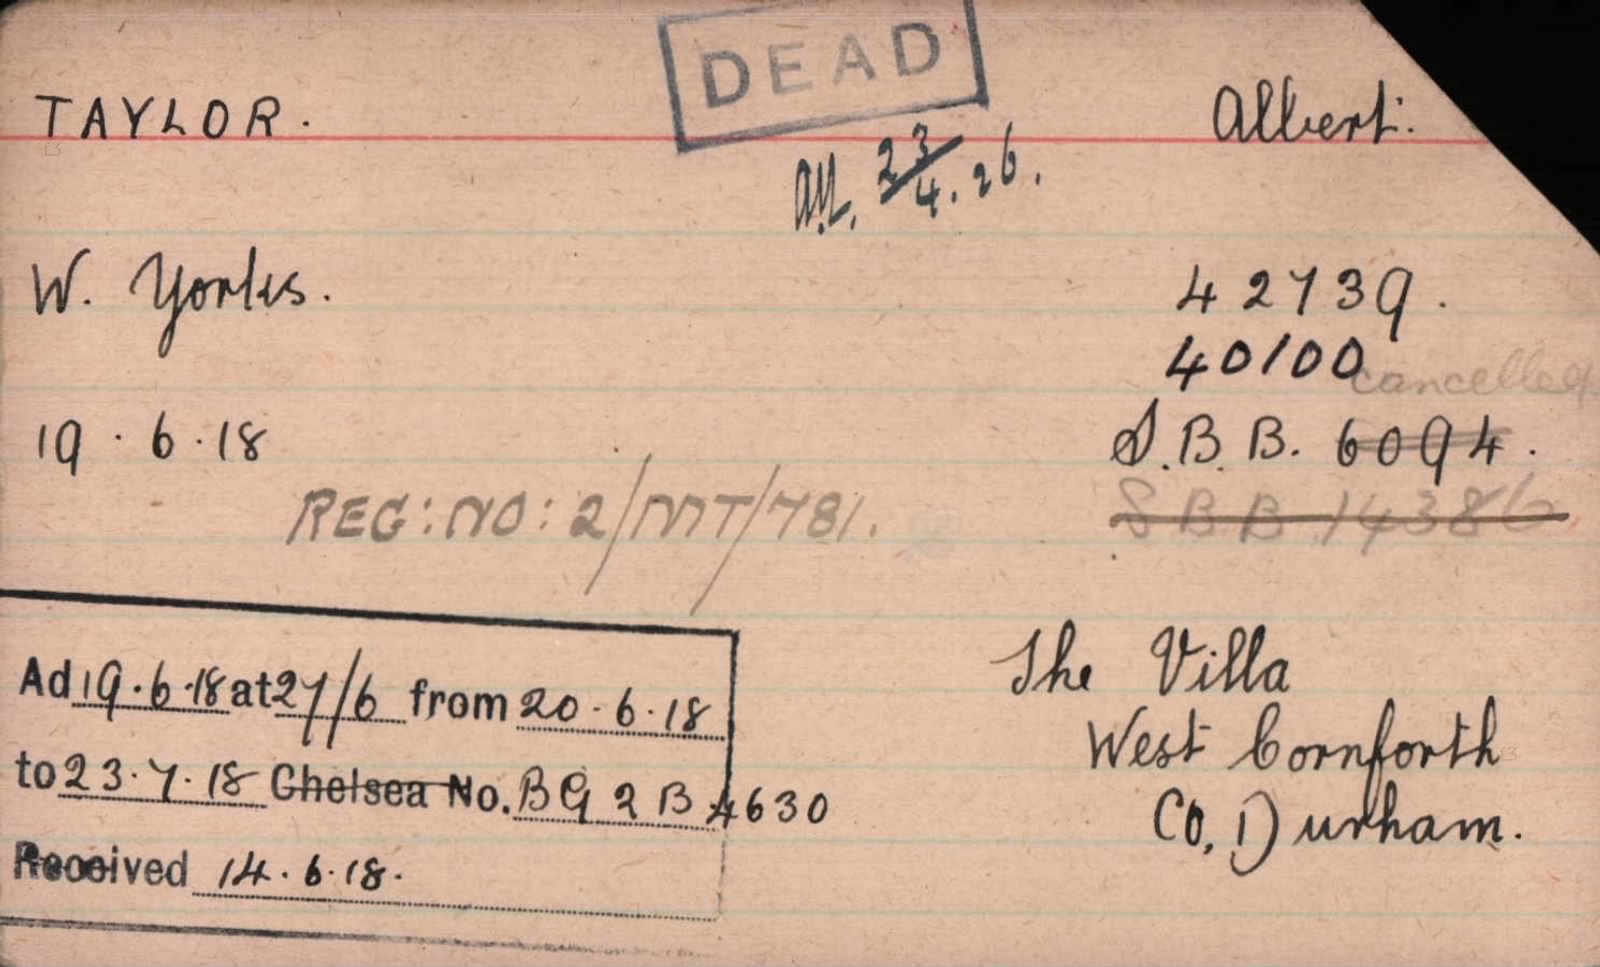 DEAD
TAYLOR. Albert.
23/4.26.
W. Yorks. 42739.
40100 cancelled
19.6.18 S.B.B. 6094.
REG:NO: 2/MT/781. S.B.B. 14386
Ad 19.6.18 at 27/6 from 20.6.18
to 23.7.18 Chelsea No. BG 2 B 4630
Received 14.6.18.
The Villa
West Cornforth
Co, Durham.